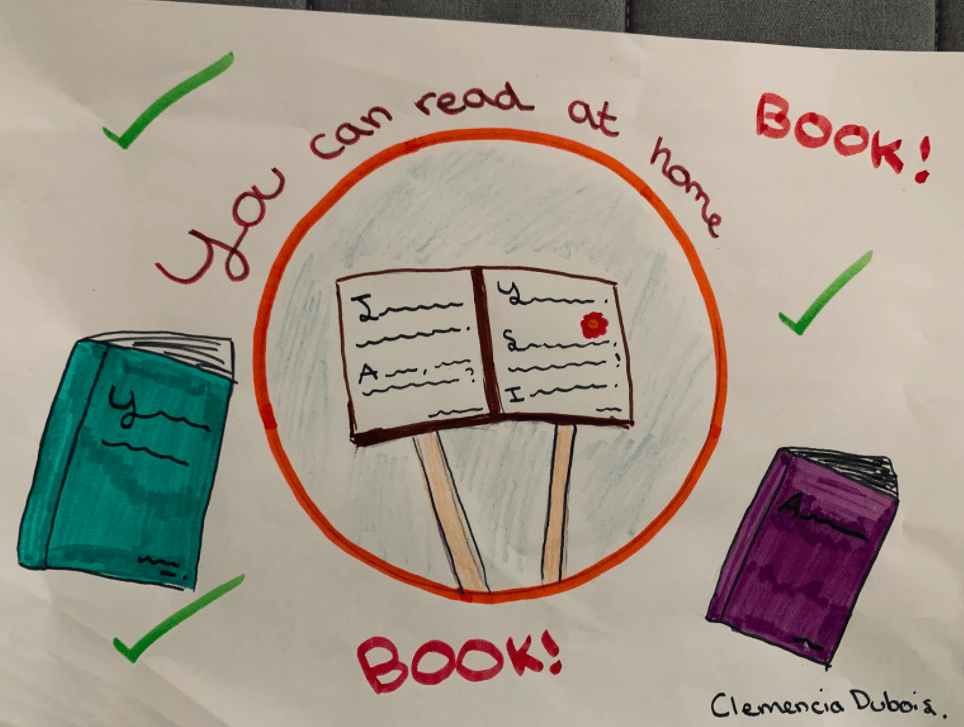 You can read at home
BOOK!
BOOK!
Clemencia Dubois.